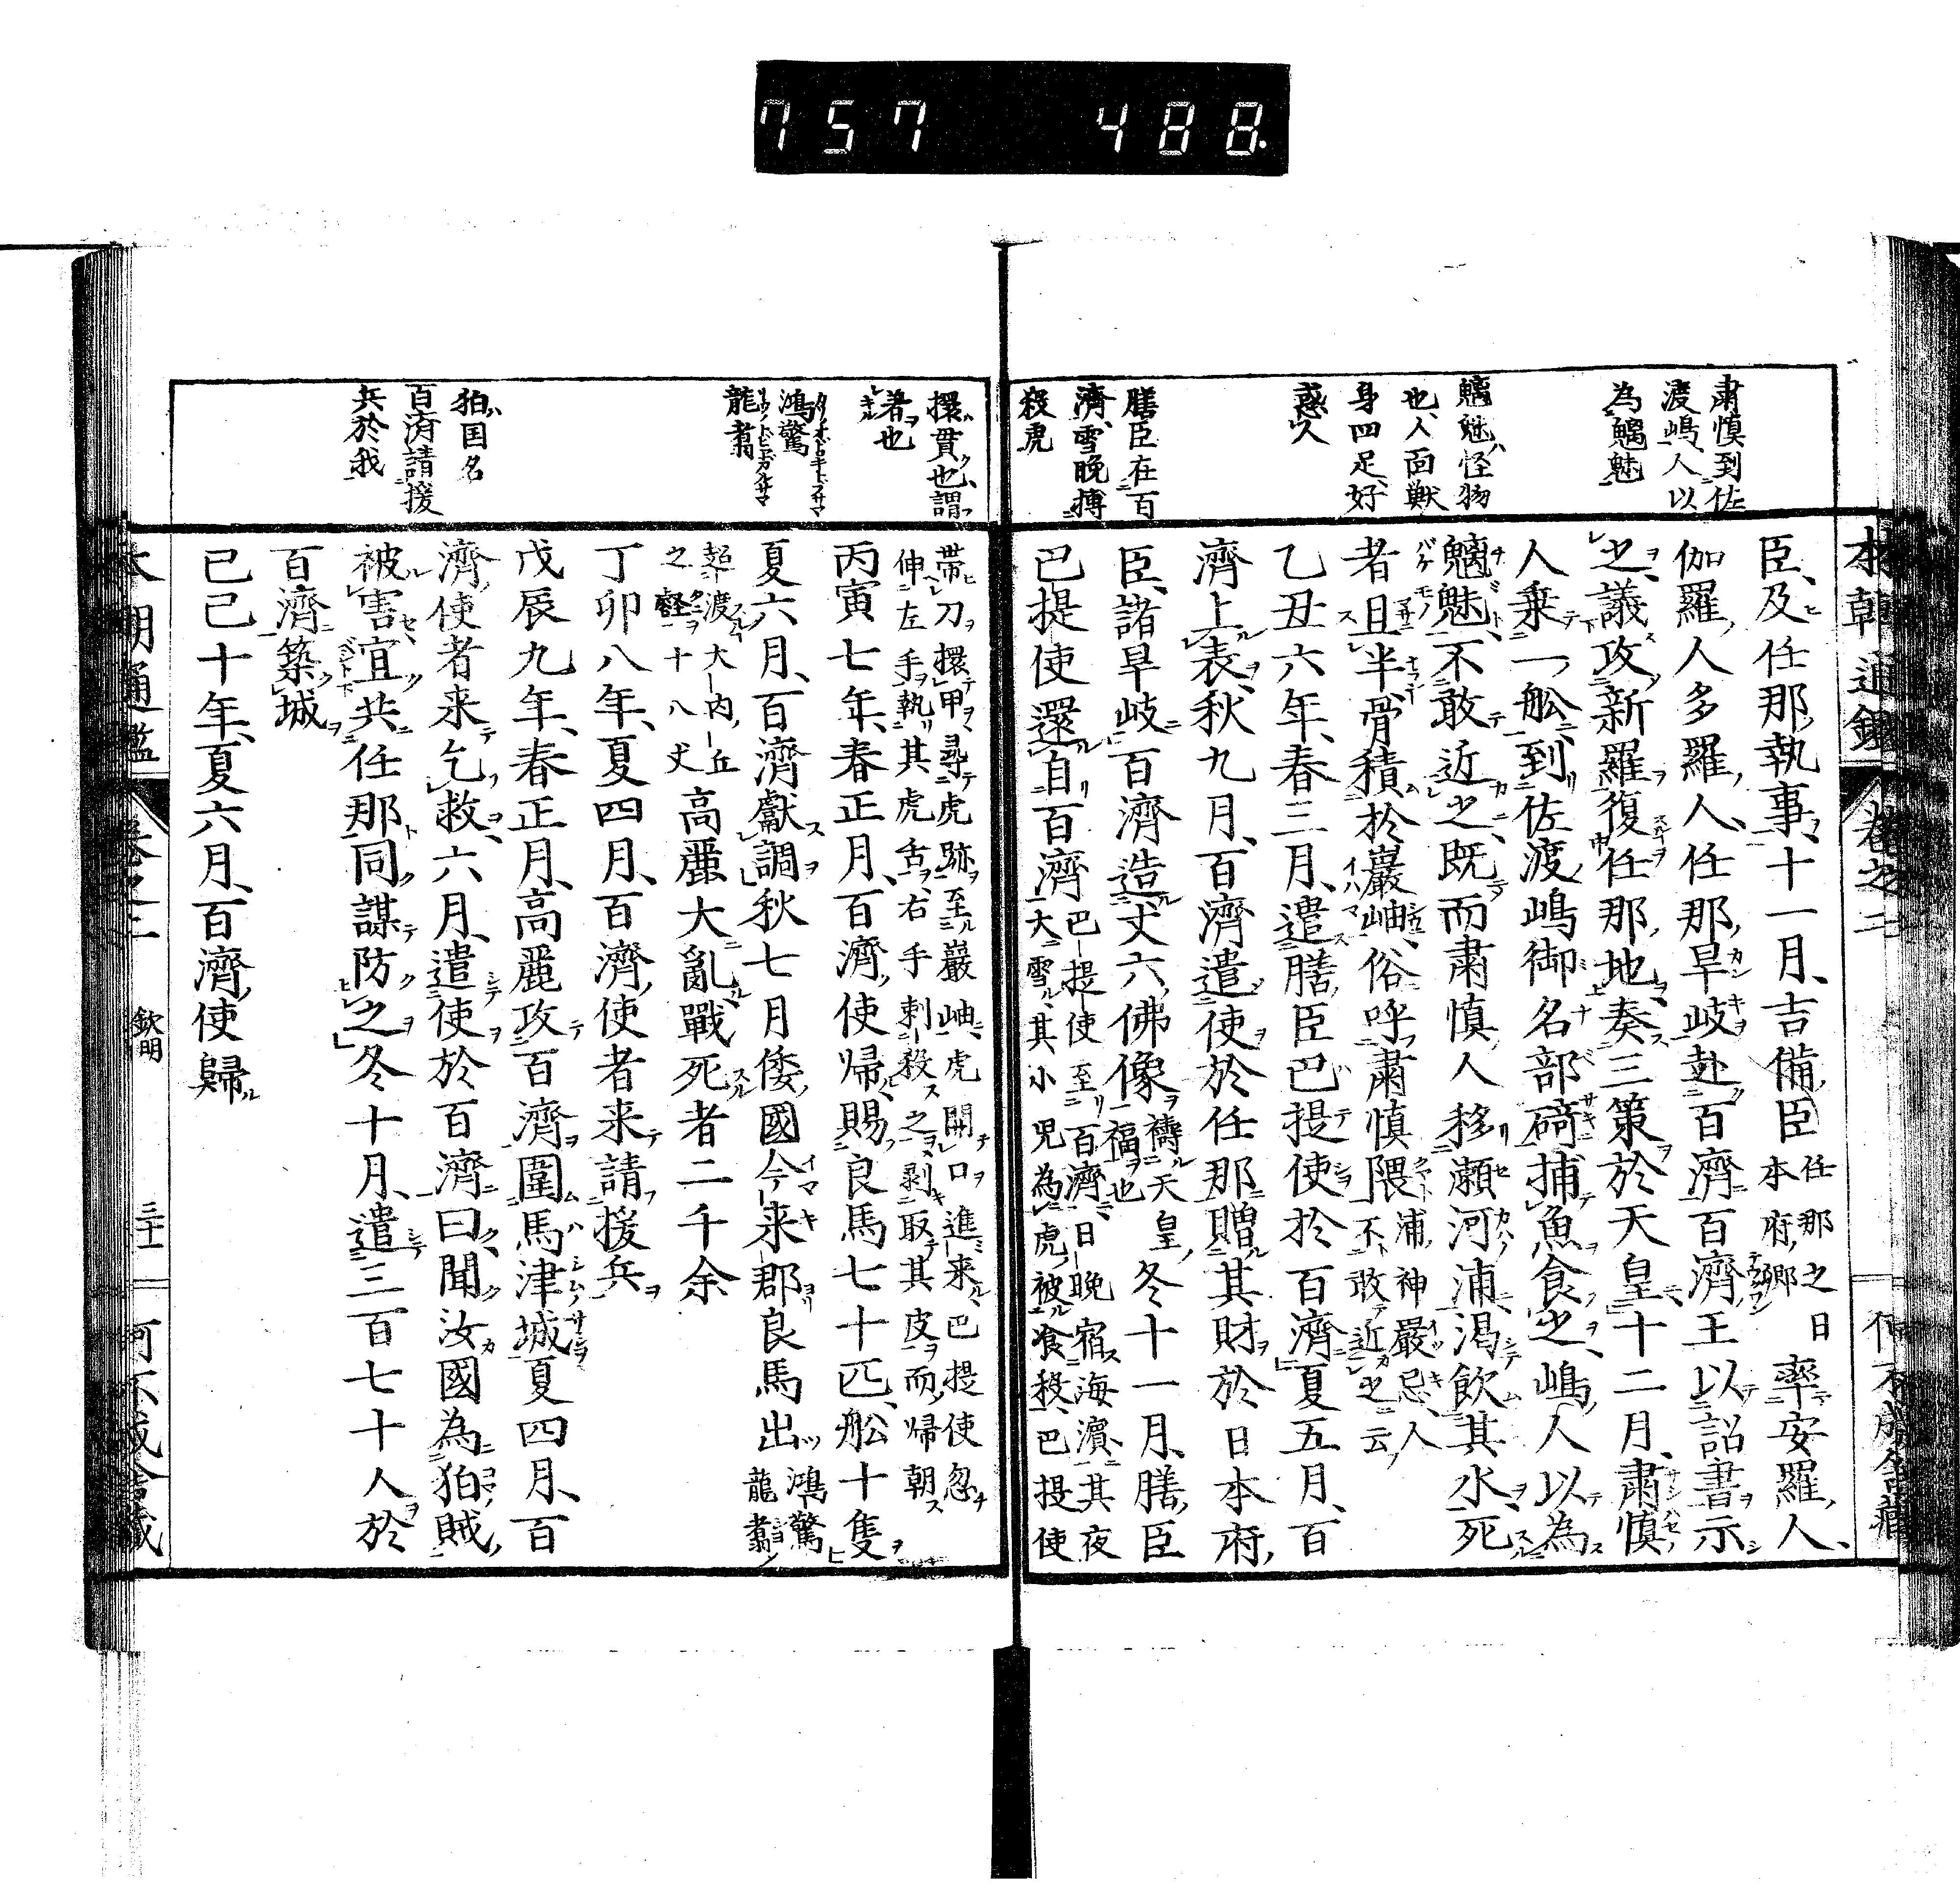 757 488.
肅慎到佐
渡嶋、人以
為魑魅
魑魅、怪物
也、人面獣
身四足、好
惑人
膳臣在百
濟、雪晩搏
殺虎
臣、及任那執事、十一月、吉備臣任那之日本府郷率安羅人、
伽羅人多羅人、任那旱岐赴百濟百濟王以詔書示
之、議攻新羅復任那地、奏三策於天皇十二月、肅慎
人乗一舩到佐渡嶋御名部碕捕魚食之、嶋人以為
魑魅、不敢近之、既而肅慎人移瀬河浦、渇飲其水、死
者且半骨積於巖岫、俗呼肅慎隈浦神嚴忌、人不敢近之云
乙丑六年、春三月、遣膳臣巴提使於百濟夏五月、百
濟上表、秋九月、百濟遣使於任那贈其財於日本府
臣、諸旱岐百濟造丈六佛像禱天皇福也冬十一月、膳臣
巴提使還自百濟巴提使至百濟、日晩宿海濱、其夜大雪、其小兒為虎被食殺、巴提使
擐貫也、謂
著也
鴻驚
龍翥
狛国名
百済請援
兵於我
帯刀擐甲尋虎跡至巖岫、虎開口進来、巴提使忽
伸左手執其虎舌、右手刺殺之、剥取其皮而帰朝
丙寅七年、春正月、百濟使帰、賜良馬七十匹、舩十隻
夏六月、百濟獻調秋七月倭國今来郡良馬出鴻驚龍翥
超渡大内丘之壑十八丈高麗大亂、戰死者二千余
丁卯八年、夏四月、百濟使者来請援兵
戊辰九年、春正月、高麗攻百濟圍馬津城夏四月、百
濟使者来乞救、六月、遣使於百濟曰聞汝國為狛賊
被害宜共任那同謀防之冬十月、遣三百七十人於
百濟築城
己巳十年、夏六月、百濟使歸
欽明
三十一